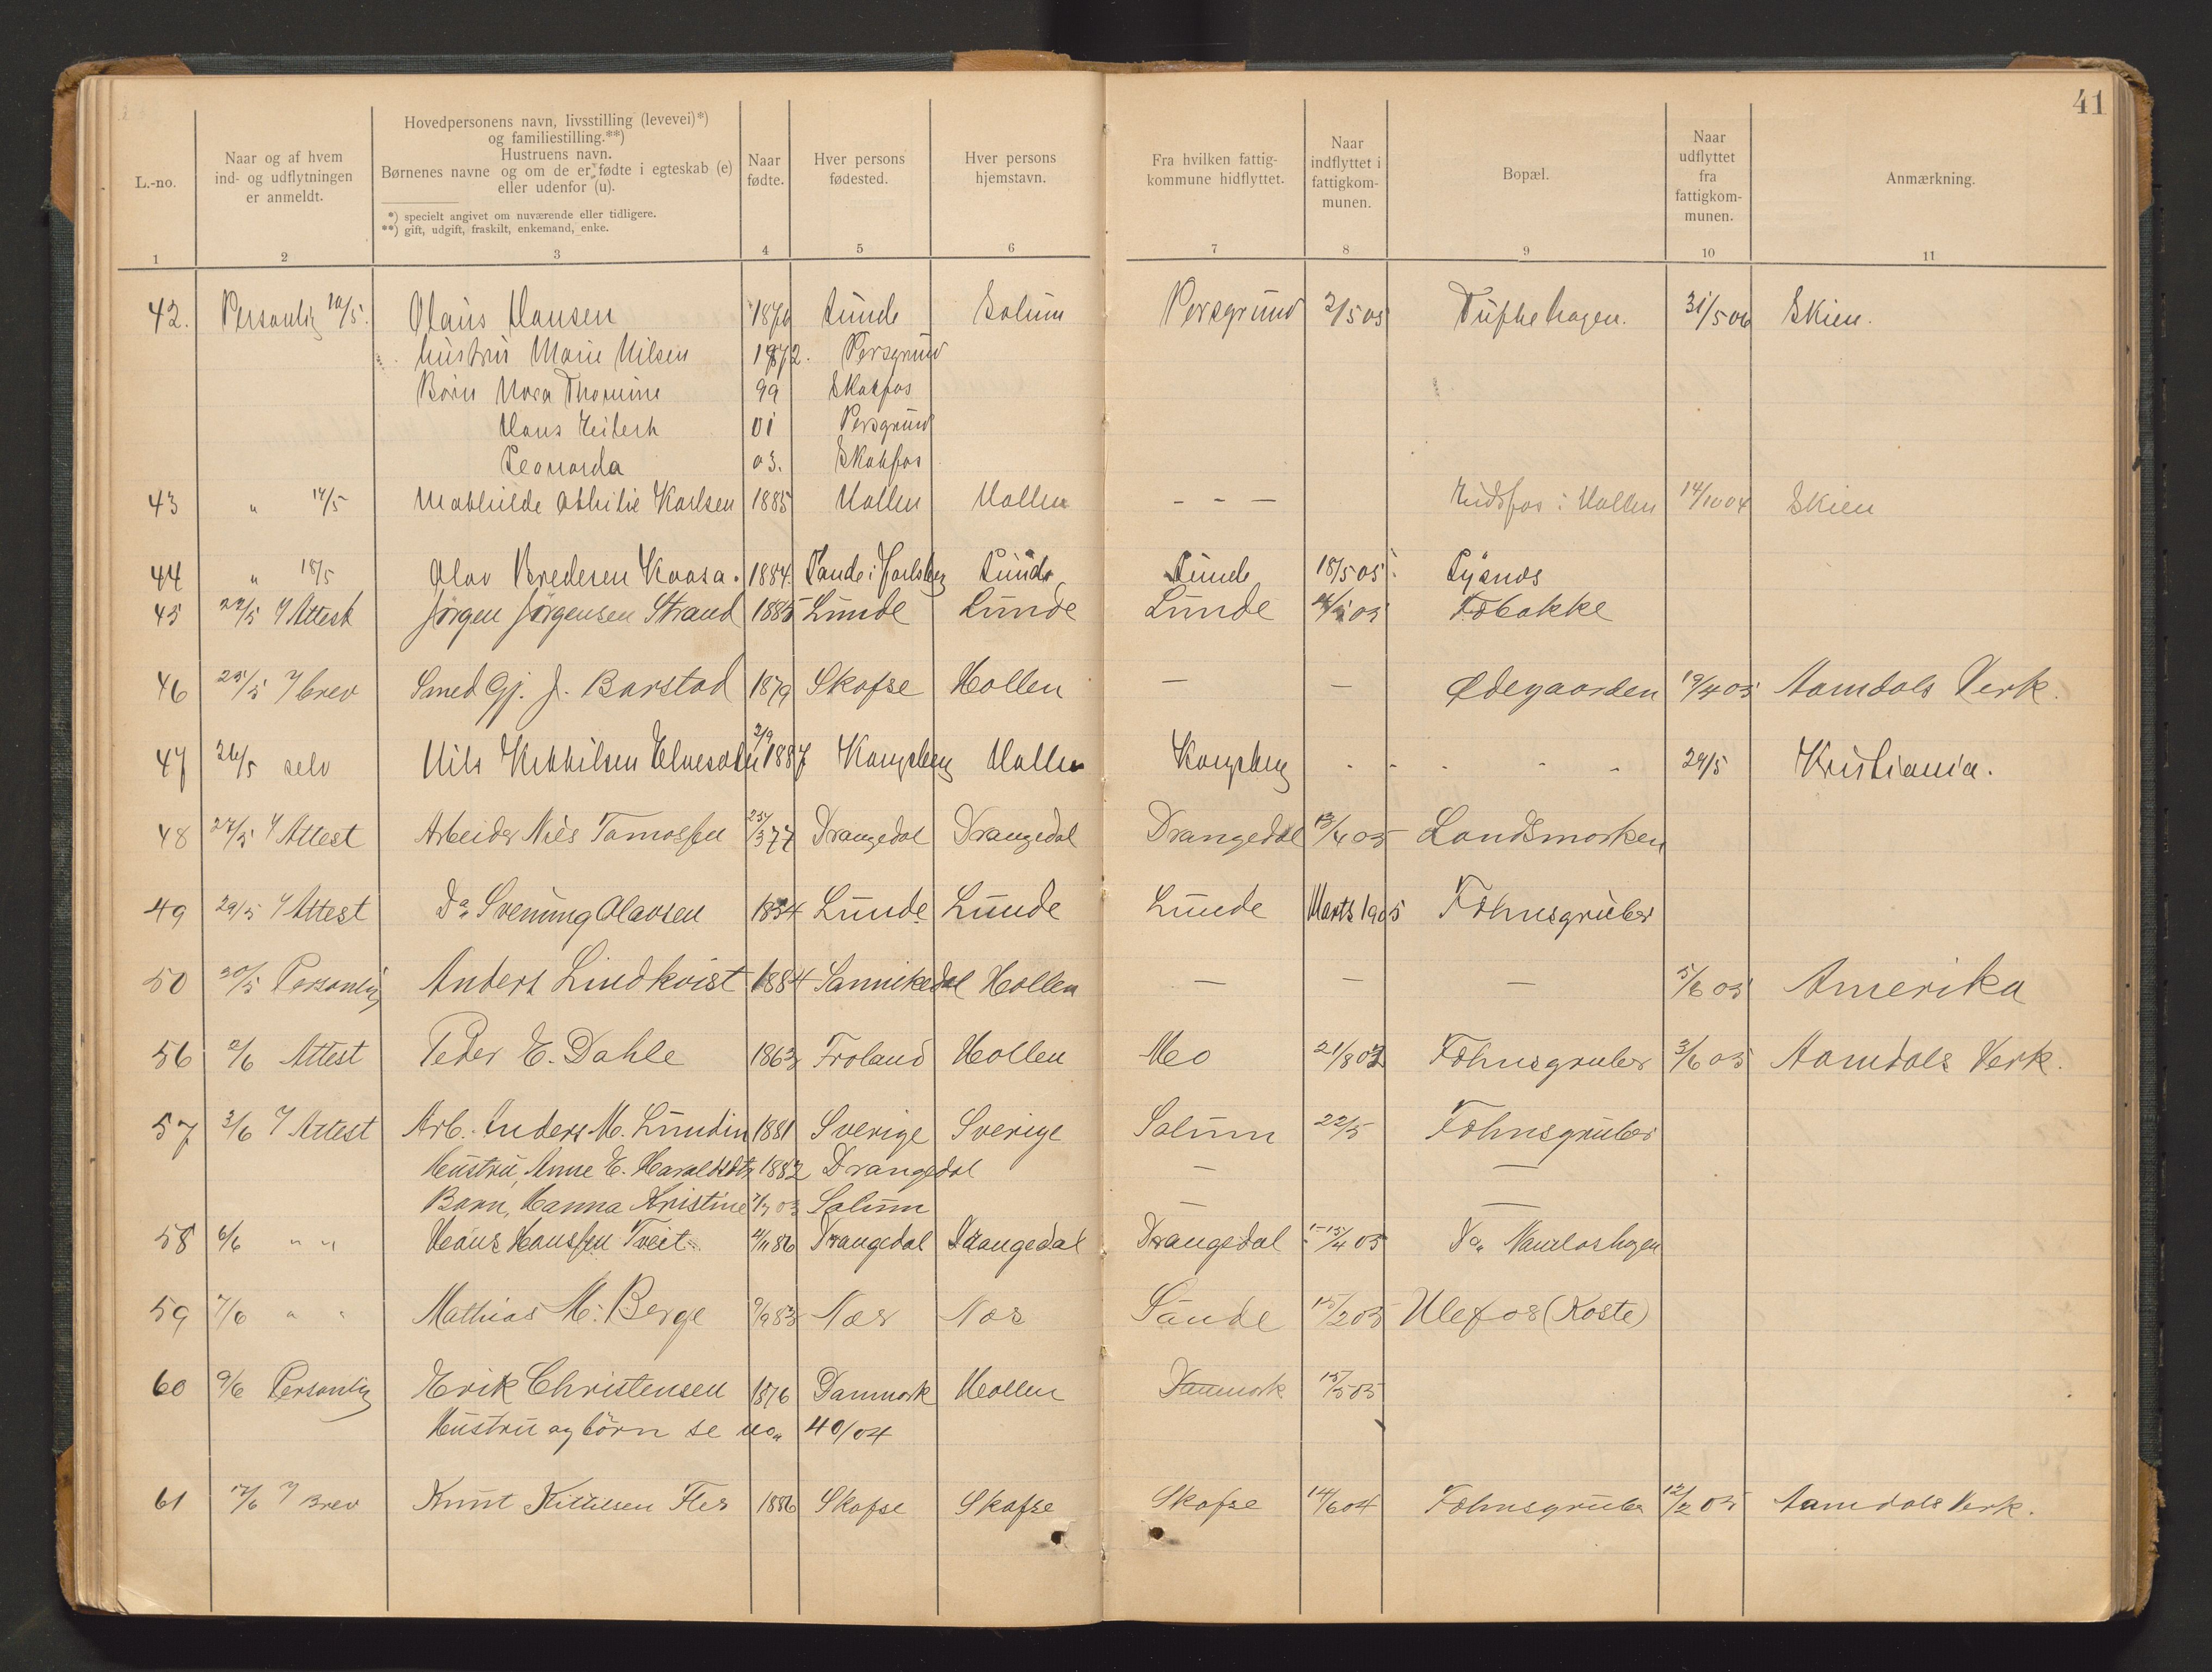 41
L.-no.
Naar og af hvem
ind- og udflytningen
er anmeldt.
Hovedpersonens navn, livsstilling (levevei)*)
og familiestilling.**)
Hustruens navn.
Børnenes navne og om de er fødte i egteskab (e)
eller udenfor (u).
*) specielt angivet om nuværende eller tidligere.
**) gift, udgift, fraskilt, enkemand, enke.
Naar
fødte.
Hver persons
fødested.
Hver persons
hjemstavn.
Fra hvilken fattig-
kommune hidflyttet.
Naar
indflyttet i
fattigkom-
munen.
Bopæl.
Naar
udflyttet
fra
fattigkom-
munen.
Anmærkning.
1 2 3 4 5 6 7 8 9 10 11
42. Personlig 10/5. Olaus Hansen 1870 Lunde Solum Porsgrund 2/5 05 Tuftehagen. 31/5 06 Skien.
hustru Marie Nilsen 1872. Porsgrund
Børn Nora Thomine 99 Skotfos
Hans 01 Porsgrund
Leonarda 03. Skotfos
43 " 14/5 Mathilde Othilie Karlsen 1885 Hollen Hollen - - - Eidsfos i Hollen 14/10 04 Skien
44 " 18/5 Olav Bredesen Kaasa. 1884. Sande i Jarlsberg Lunde Lunde 18/5 05. Lysnes
45 22/5 Attest Jørgen Jørgensen Strand 1885 Lunde Lunde Lunde 05
46 25/5 brev Smed Gj. J. Barstad 1879 Skafse Hollen — — Ødegaarden 19/4 05 Aamdals Verk.
47 26/5 selv Nils Kittilsen 2/9 1887 Kongsberg Hollen Kongsberg - - - - 29/5 Kristiania.
48 27/5 Attest Arbeider Nils Tomassen 25/3 77 Drangedal Drangedal Drangedal 13/4 05 Landsmarken
49 29/5 Attest Do Svenung Olavsen 1854 Lunde Lunde Lunde Marts 1905 Fæhnsgruber
50 30/5 Personlig Anders Lindkvist 1884 Sannikedal Hollen — — — 5/6 05 Amerika
56 2/6 Attest Peder E. Dahle 1863 Froland Hollen Mo 21/8 03 Fæhnsgruber 3/6 05 Aamdals Verk.
57 3/6 Attest Arb. Anders M. Lundin 1881 Sverige Sverige Solum 22/5 Fæhnsgruber
Hustru, Anne E. Haraldsdtr 1882 Drangedal — —
Barn, Hanna Kristine 03 Solum — —
58 6/6 " " Hans Hanssen Tveit 86 Drangedal Drangedal Drangedal 15/4 05 Do
59 7/6 " " Mathias M. Berge 83 Næs Næs Sande 15/2 05 Ulefos (Koste)
60 9/6 Personlig Erik Christensen 1876 Danmark Hollen Danmark 15/5 05
Hustru og børn se no. 40/04
61 17/6 Brev Knut Kittilsen 1886 Skafse Skafse Skafse 14/6 04 Fæhnsgruber 12/2 05 Aamdals Verk.